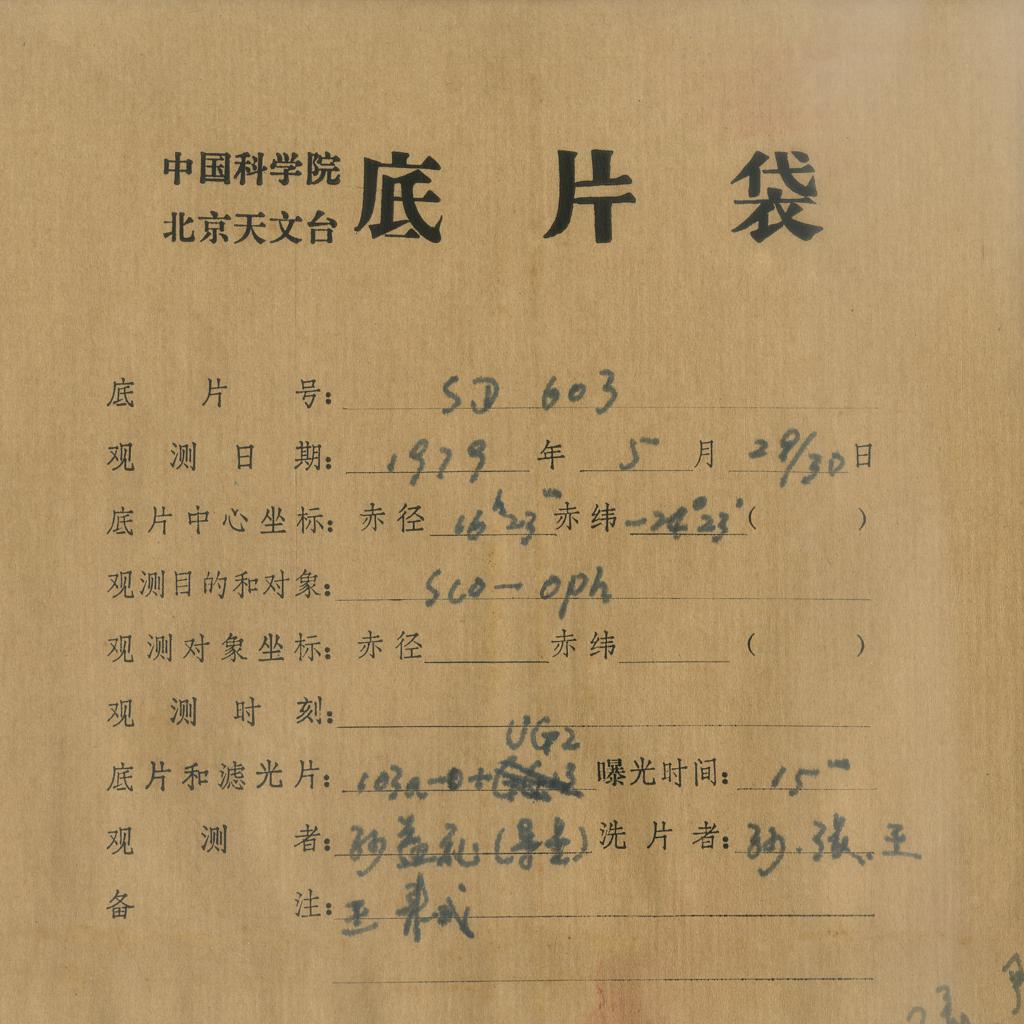 中国科学院
北京天文台
底片袋
底片号: SD 603
观测日期: 1979 年 5 月 29/30 日
底片中心坐标: 赤径 16h23m 赤纬 -24°23′ ( )
观测目的和对象: Sco - oph
观测对象坐标: 赤径 赤纬 ( )
观测时刻:
UG2
底片和滤光片: 103a-O+ 曝光时间: 15m
观测者: 孙益礼 (导星) 洗片者: 孙.张.王
备注: 王